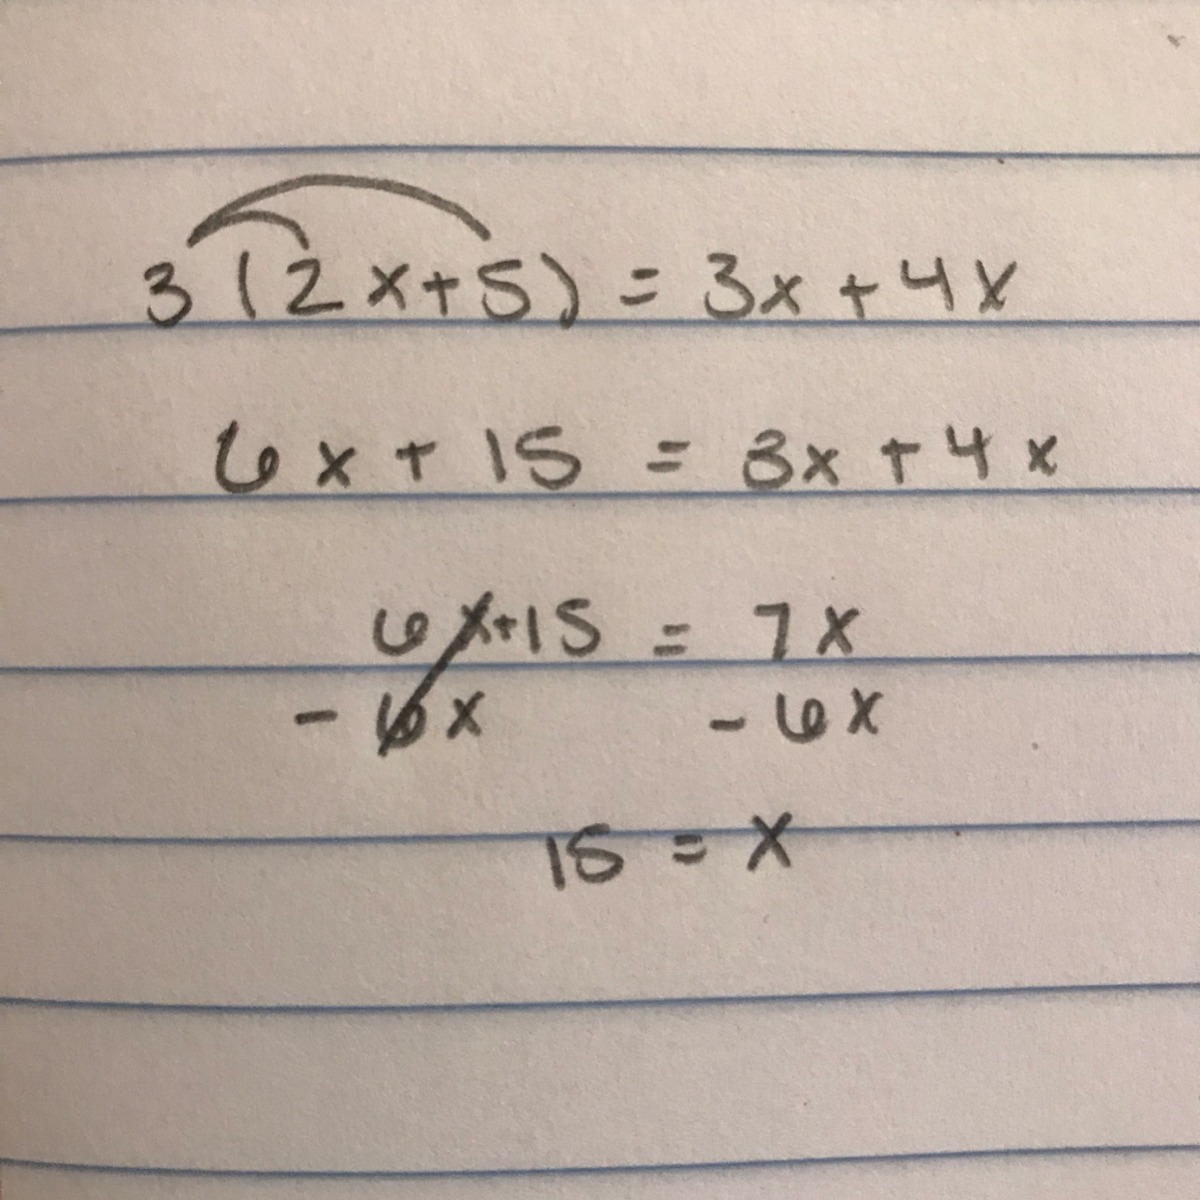 3(2x+5) = 3x + 4x
6x + 15 = 3x + 4x
6x+15 = 7x
- 6x - 6x
15 = x